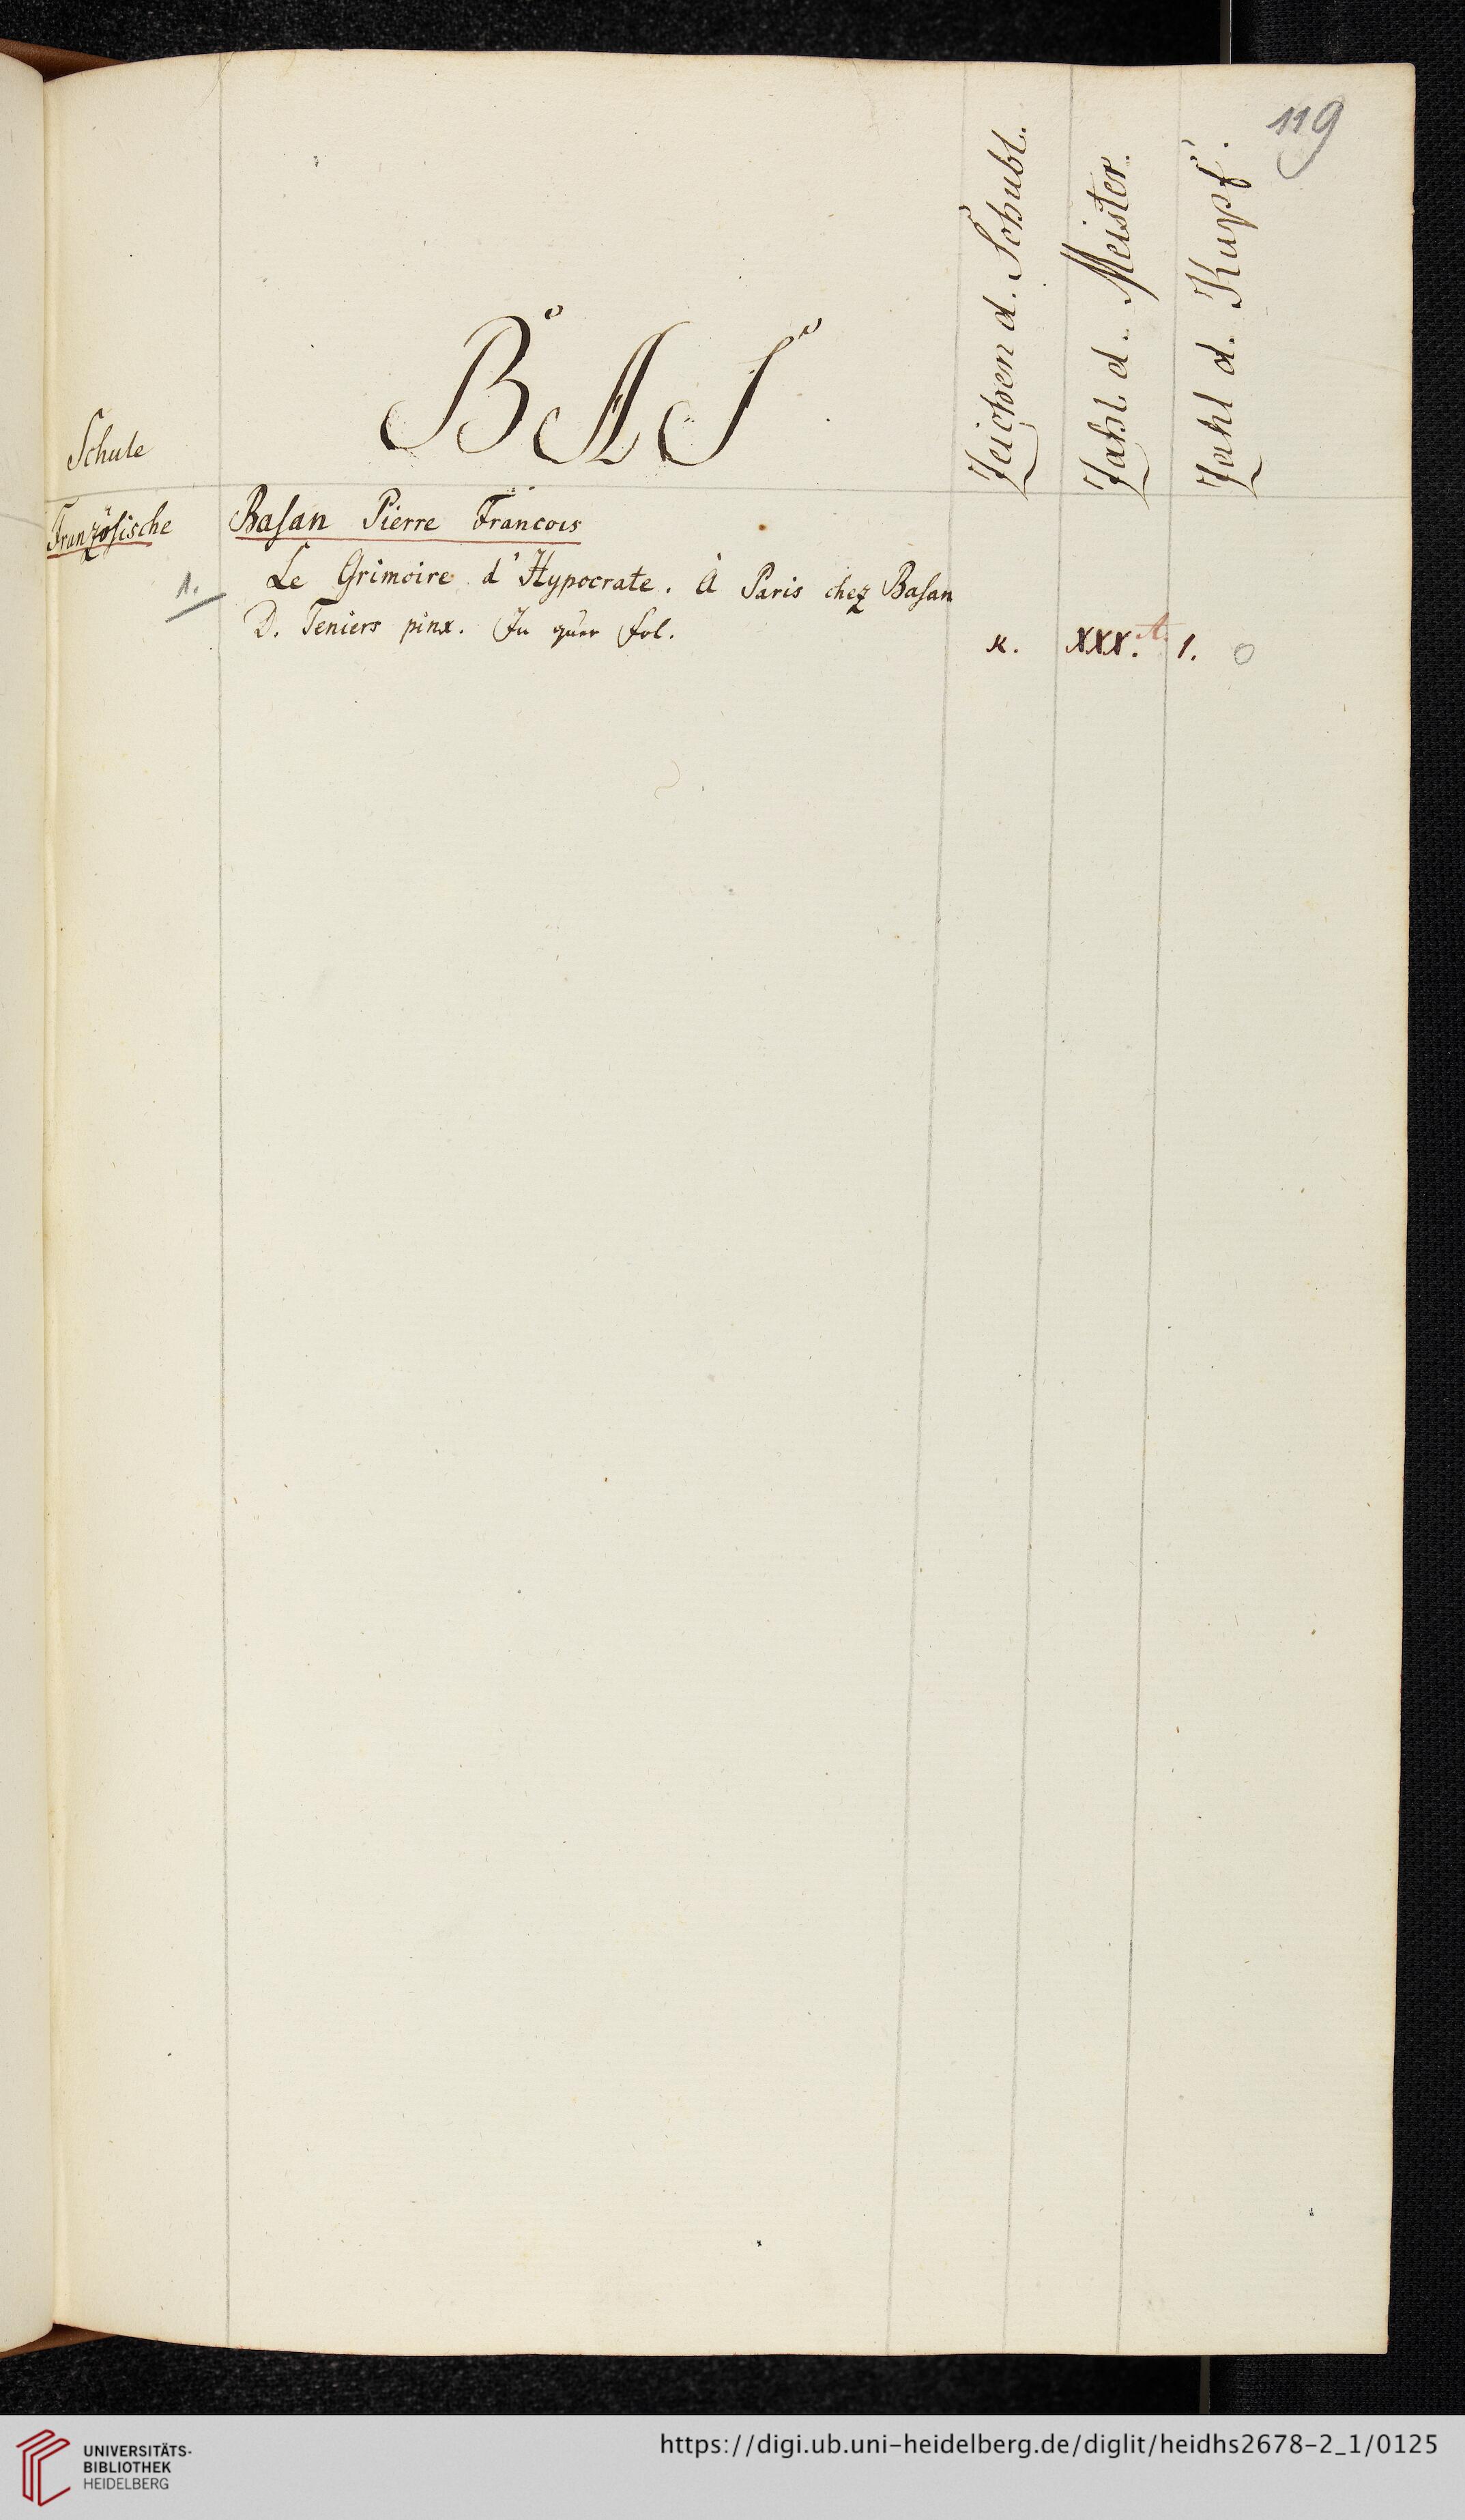 119
Zeichen d. Schubl.
Zahl d. Meister.
Zahl d. Kupf.
BAS
Schule
Französische
Basan Pierre Francois
1. Le Grimoire d'Hypocrate. à Paris chez Basan
D. Teniers pinx. In quer fol.
K. XXX. A. 1. 0
UNIVERSITÄTS-
BIBLIOTHEK
HEIDELBERG
https://digi.ub.uni-heidelberg.de/diglit/heidhs2678-2_1/0125